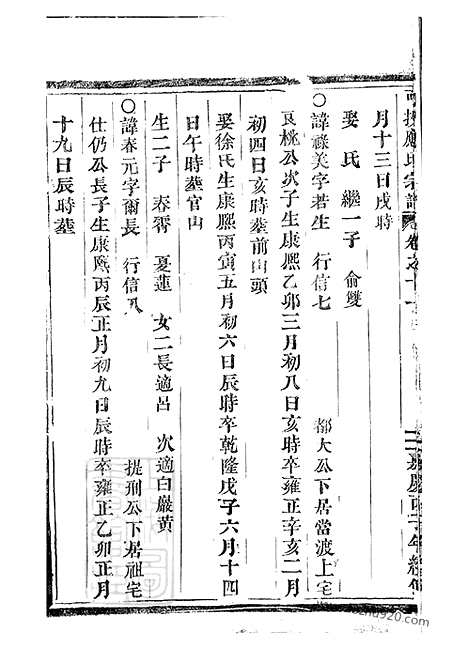 應氏宗譜 卷之十一
月十三日戌時
娶 氏 繼一子 俞雙
○諱祿美字若生 行信七 都大公下居當渡上宅
艮桃公次子生康熙乙卯三月初八日亥時卒雍正辛亥二月
初四日亥時塟前山頭
娶徐氏生康熙丙寅五月初六日辰時卒乾隆戊子六月十四
日午時塟官山
生二子 憂蓮 女二長適呂 次適白巖黄
○諱春元字爾長 行信 提刑公下居祖宅
仕仍公長子生康熙丙辰正月初九日辰時卒雍正乙卯正月
十九日辰時塟